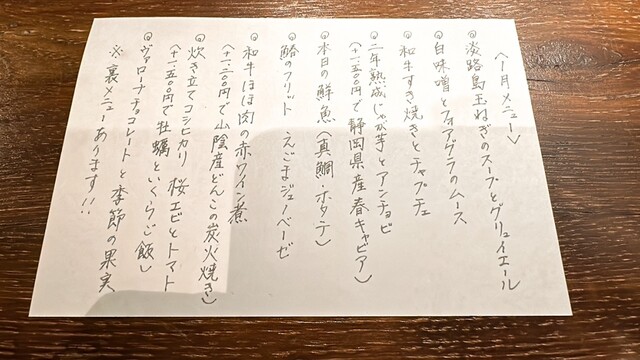 〈1月メニュー〉
◎淡路島玉ねぎのスープとグリュイエール
◎白味噌とフォアグラのムース
◎和牛すき焼きとチャプチェ
◎二年熟成じゃが芋とアンチョビ
(+一、五〇〇円で静岡県産春キャビア)
◎本日の鮮魚(真鯛・ホタテ)
◎鮑のフリット えごまジェノベーゼ
◎和牛ほほ肉の赤ワイン煮
(+一、二〇〇円で山陰産どんこの炭火焼き)
◎炊き立てコシヒカリ 桜エビとトマト
(+一、五〇〇円で牡蠣といくらご飯)
◎ヴァローナチョコレートと季節の果実
※裏メニューあります!!